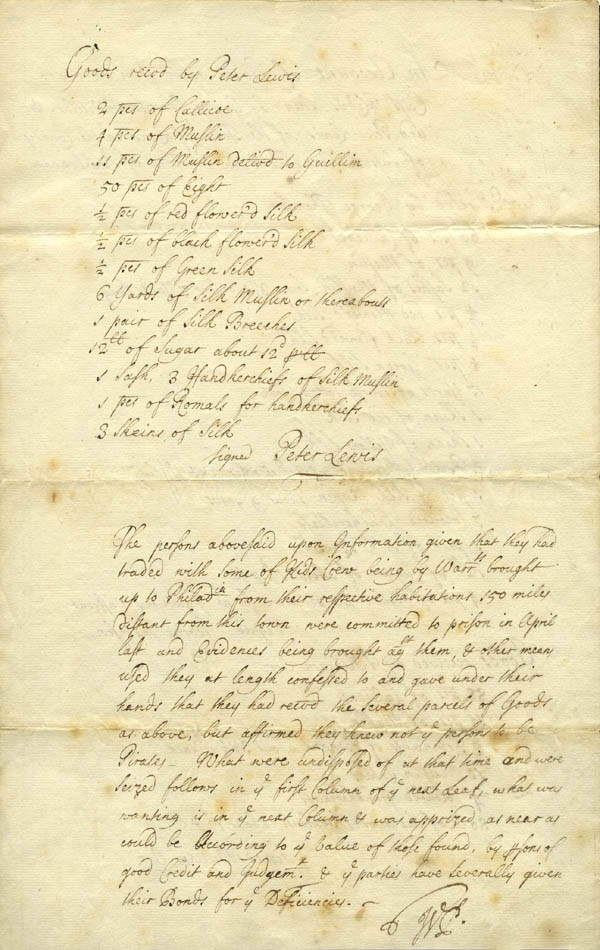 Goods recvd by Peter Lewis
2 pcs of Callicoe
4 pcs of Muslin
11 pcs of Muslin delivd to Guillim
50 pcs of Eight
½ pcs of red flower'd Silk
½ pcs of black flower'd Silk
½ pcs of Green Silk
6 Yards of Silk Muslin or thereabouts
1 pair of Silk Breeches
12lb of Sugar about 12d
1 Sash, 3 Handkerchiefs of Silk Muslin
1 pcs of Romals for handkerchiefs
3 Skeins of Silk
signed Peter Lewis
The persons abovesaid upon Information given that they had
traded with some of Kids Crew being by Warrts brought
up to Philadia from their respective habitations 150 miles
distant from this town were committed to prison in April
last and Evidences being brought agst them, & other means
used they at length confessed to and gave under their
hands that they had recvd the several parcels of Goods
as above, but affirmed they knew not ye persons to be
Pirates What were undisposed of at that time and were
seized follows in ye first Column of ye next Leaf, what was
wanting is in ye next Column & was apprized as near as
could be according to ye Value of those found, by psons of
good Credit and Judgemt. & ye parties have severally given
their Bonds for ye Deficiencies.
WP.